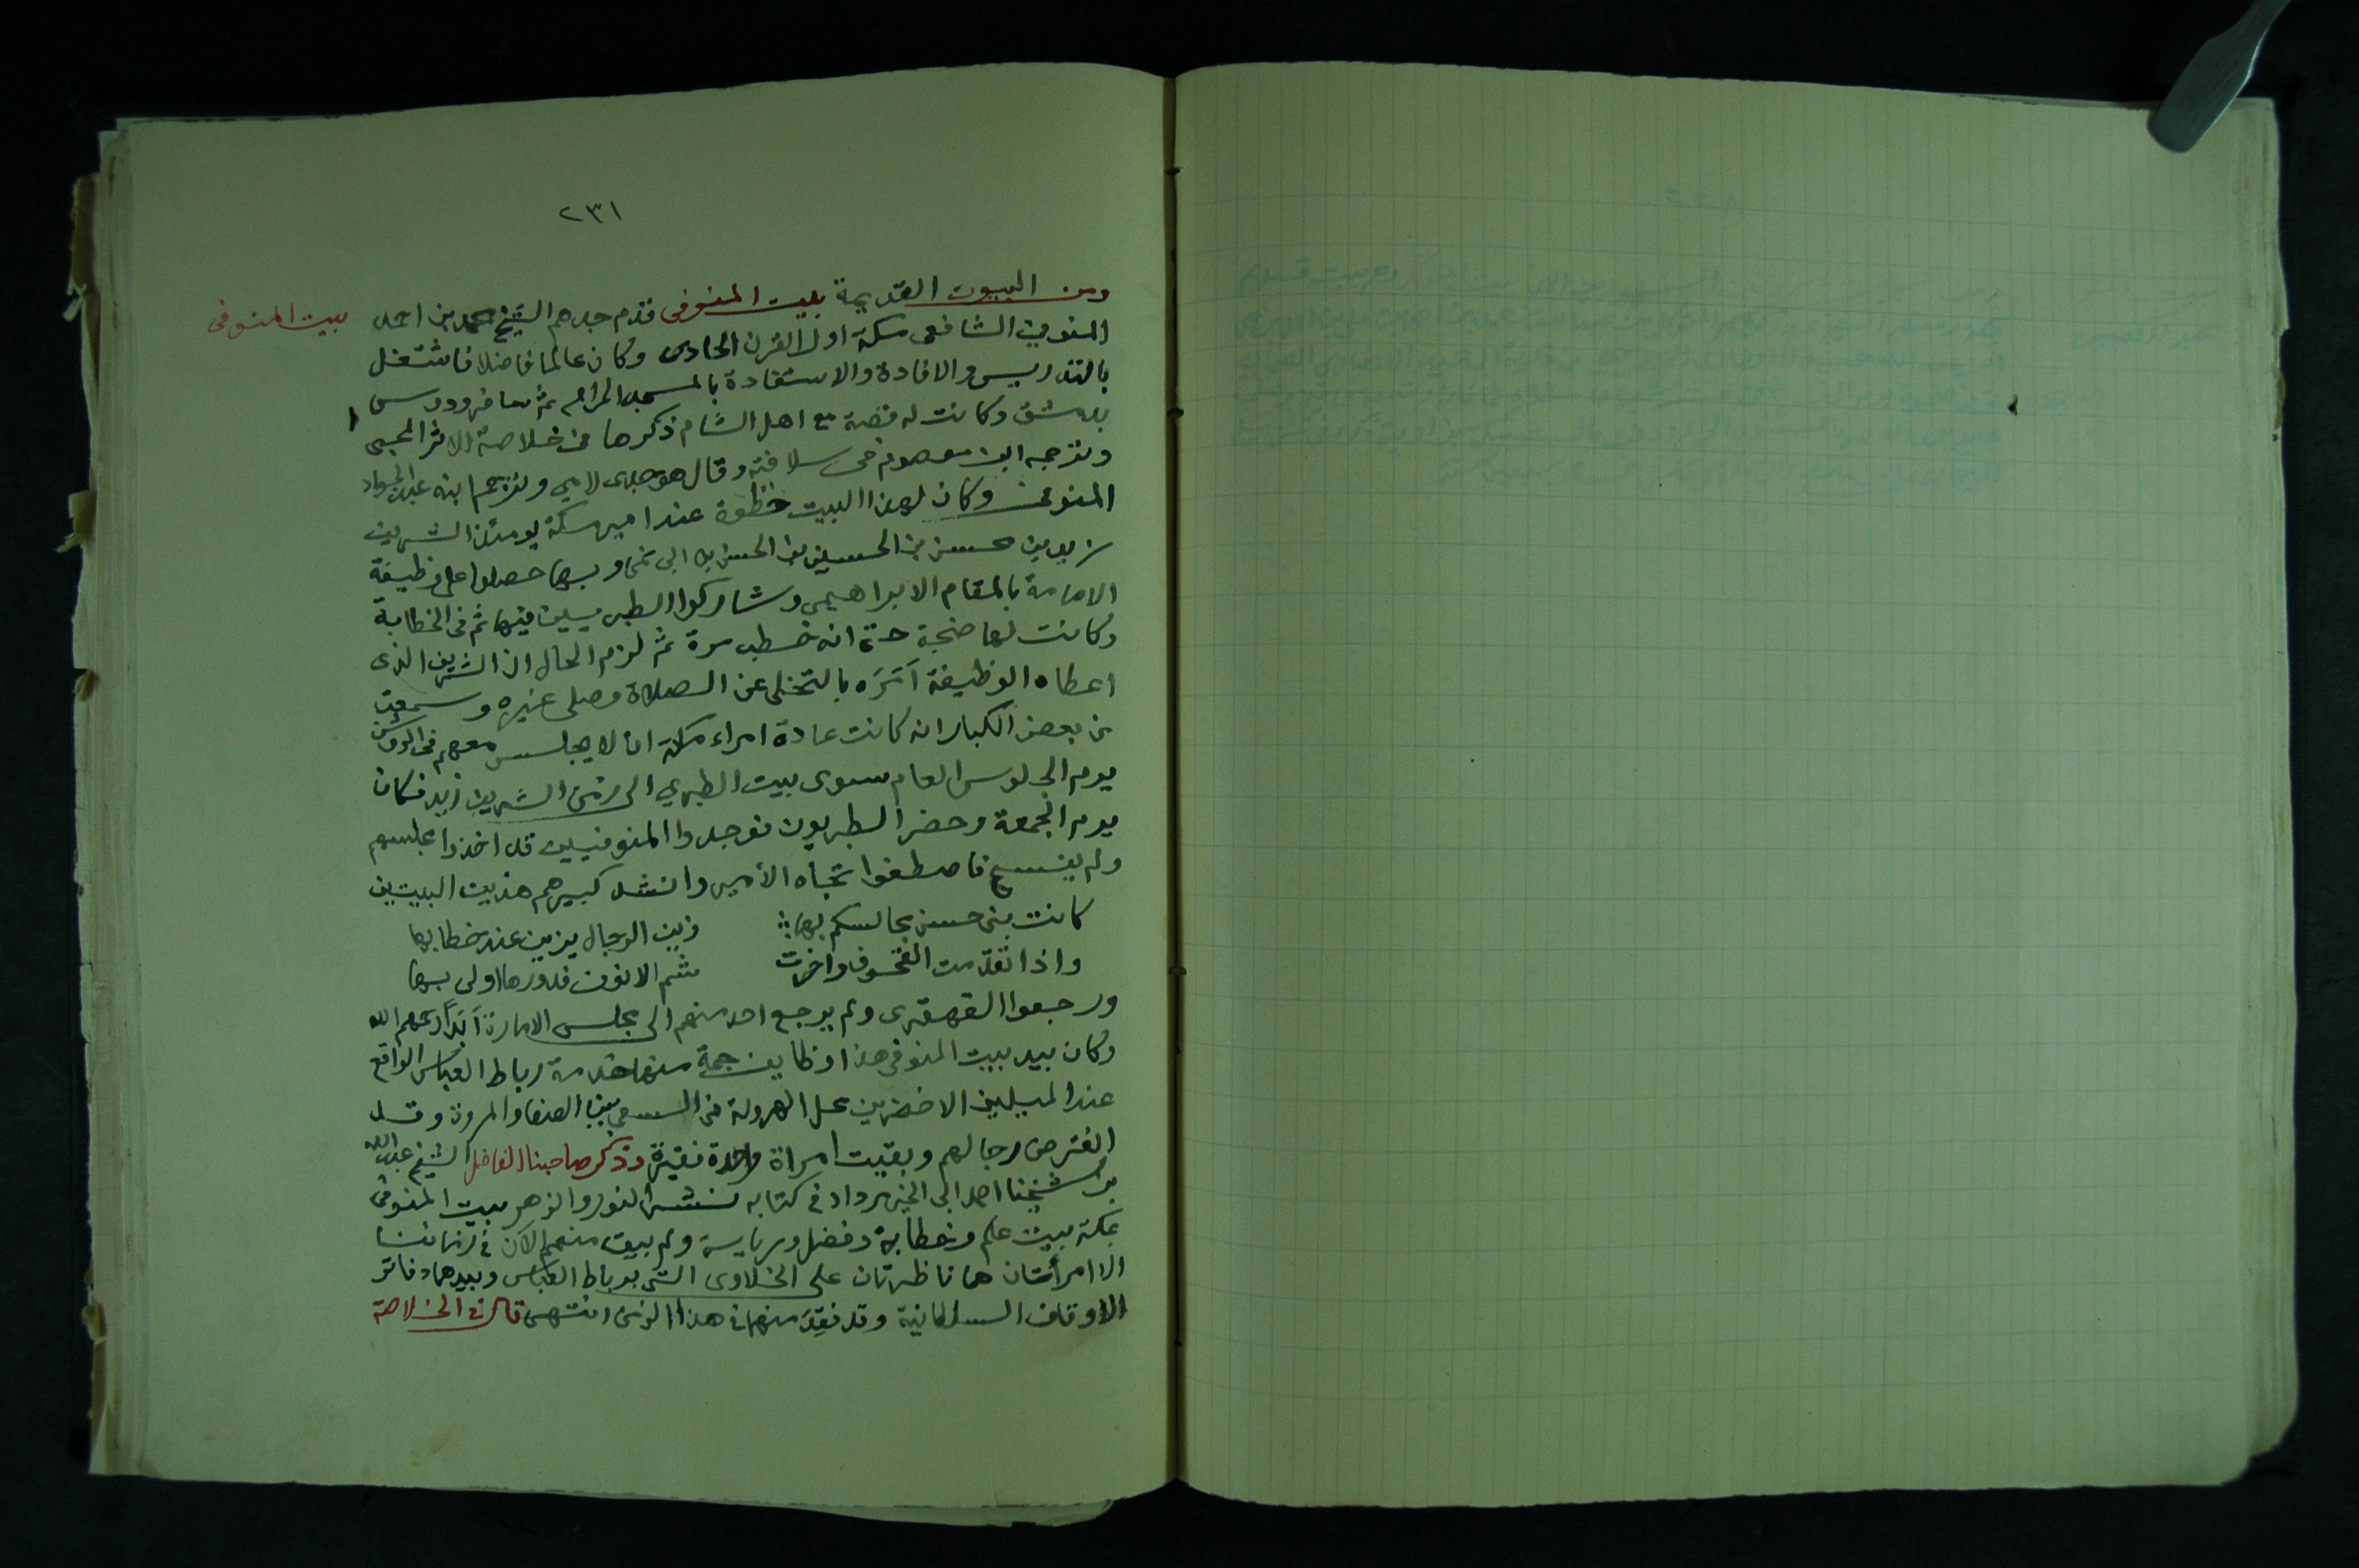 ٢٣١
بيت المنوفى
ومن البيوت القديمة بيت المنوفى قدم جدهم الشيخ محمد بن احمد
المنوفي الشافعى مكة اول القرن الحادى وكان عالما فاضلا فاشتغل
بالتدريس والافادة والاستفادة بالمسجد الحرام ثم سافر ودرس
بدمشق وكانت له قصة مع اهل الشام ذكرها في خلاصة الاثر المحبى
وترجمه ابن معصوم فى سلافته وقال هو جدى لامي وترجم ابنه عبد الجواد
المنوفى وكان لهذا البيت حظوة عند امير مكة يومئذ الشريف
زيد بن محسن بن الحسين بن الحسن بن ابى نمى وبها حصلوا على وظيفة
الامامة بالمقام الابراهيمى وشاركوا الطبريين فيها ثم فى الخطابة
وكانت لها ضجة حتى انه خطب مرة ثم لزم الحال ان الشريف الذى
اعطاه الوظيفة آمَرَه بالتخلى عن الصلاة وصلى غيره وسمعت
من بعض الكبار انه كانت عادة امراء مكة ان لا يجلس معهم فى الروشن
يوم الجلوس العام سوى بيت الطبري الى زمن الشريف زيد فكان
يوم الجمعة وحضر الطبريون فوجدوا المنوفيين قد اخذوا مجلسهم
ولم يفسح فاصطفوا تجاه الأمير وانشد كبيرهم هذين البيتين
كانت بنى حسن مجالسكم بها؛ زين الرجال يزين عند خطابها
واذا تقدمت القحوف واخرت شم الانوف فدورها اولى بها
ورجعوا القهقرى ولم يرجع احد منهم الى مجلس الامارة أبَداً رحمهم الله
وكان بيد بيت المنوفى هذا وظايف جمة منها خدمة رباط العباس الواقع
عند الميلين الاخضرين محل الهرولة فى المسعى بين الصفا والمروة وقد
انقرض رجالهم وبقيت امراة واحدة فقيرة وذكر صاحبنا الفاضل الشيخ عبد الله
بن شيخنا احمد ابى الخير مرداد فى كتابه نشر النور والزهر بيت المنوفى
بمكة بيت علم وخطابة وفضل ورياسة ولم يبق منهم الآن فى زماننا
الا امرأتان هما ناظرتان على الخلاوى التى برباط العباس وبيدهما دفاتر
الاوقاف السلطانية وقد فُقِدَ منهما فى هذا الزمن انتهى قال فى الخلاصة